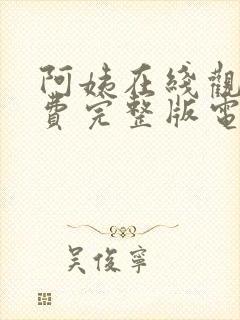 阿姨在綫觀
費完整版電
吳俊寧